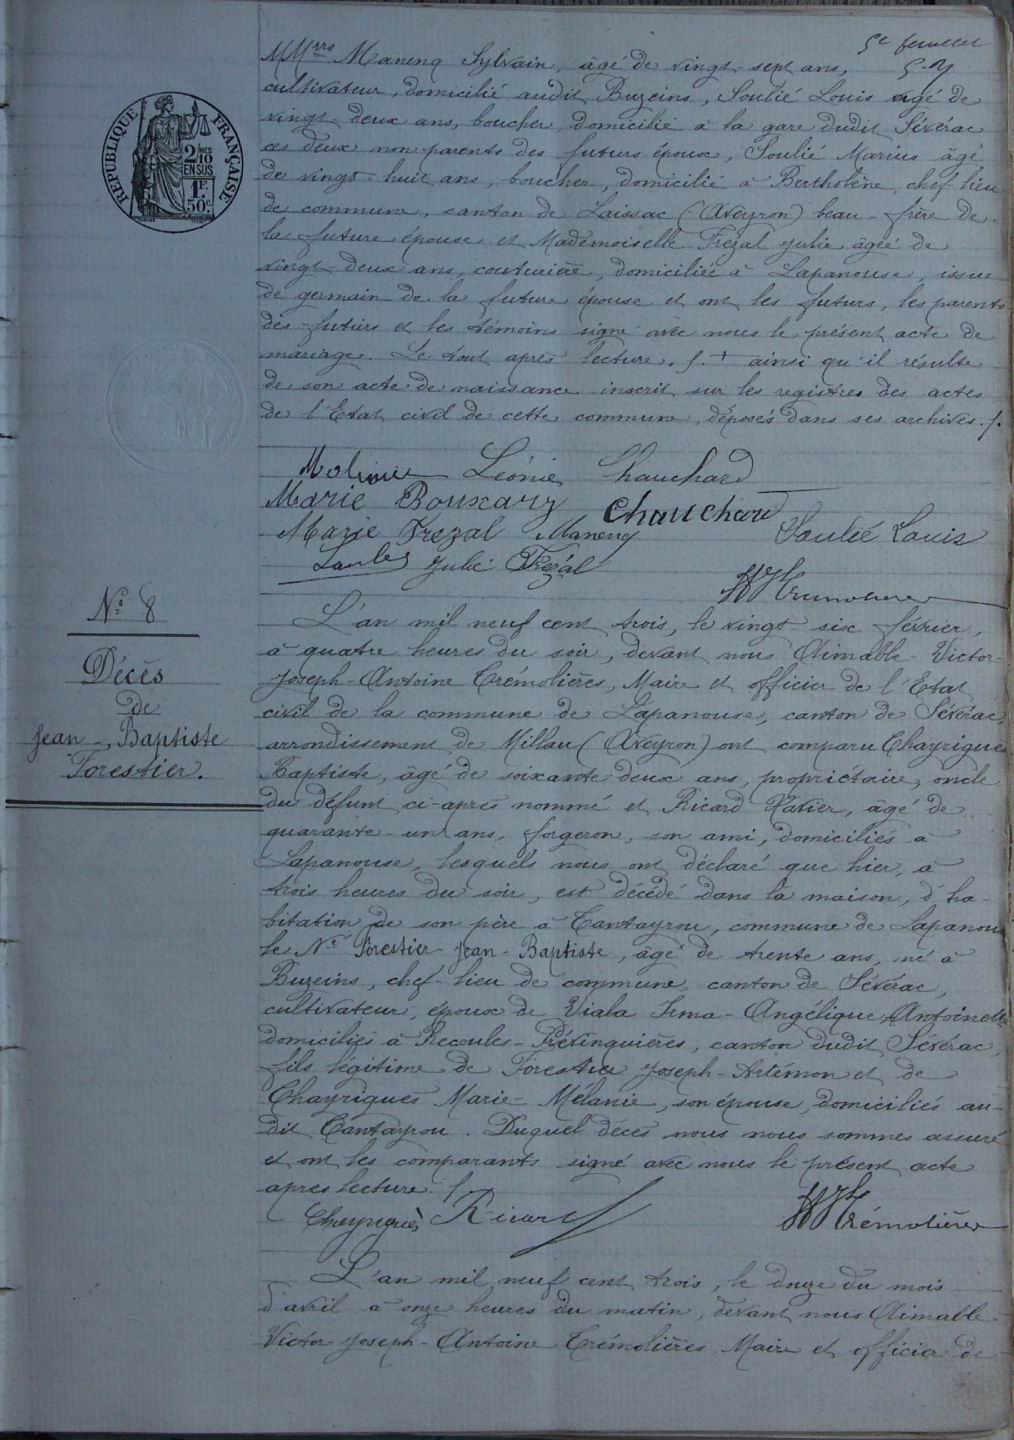 5e feuillet
MMrrs Manenq Sylvain, âgé de vingt-sept ans,
cultivateur, domicilié audit Buzeins, Soulié Louis âgé de
vingt-deux ans, boucher, domicilié à la gare dudit Sévérac
ces deux non parents des futurs époux, Soulié Marius âgé
de vingt-huit ans, boucher, domicilié à Bertholène, chef-lieu
de commune, canton de Laissac (Aveyron) beau-frère de
la future épouse et Mademoiselle Frézal Julie âgée de
vingt-deux ans, couturière, domiciliée à Lapanouse, issue
de germain de la future épouse et ont les futurs, les parents
des futurs et les témoins signé avec nous le présent acte de
mariage. Le tout après lecture. /. + ainsi qu'il résulte
de son acte de naissance inscrit sur les registres des actes
de l'Etat civil de cette commune, déposés dans ses archives. /.
REPUBLIQUE FRANÇAISE
2/10 EN SUS
1F. 50c.
Molinier Léonie Chauchard
Marie Bouxary Chauchard
Marie Frezal Manenq Soulié Louis
Julie Frézal
Trémolières
N° 8
Décès
de
Jean-Baptiste
Forestier.
L'an mil neuf cent trois, le vingt six février,
à quatre heures du soir, devant nous Aimable-Victor-
Joseph-Antoine Trémolières, Maire et officier de l'Etat
civil de la commune de Lapanouse, canton de Sévérac,
arrondissement de Millau (Aveyron) ont comparu Chayriguès
Baptiste, âgé de soixante deux ans, propriétaire, oncle
du défunt ci-après nommé et Ricard Xavier, âgé de
quarante-un ans, forgeron, son ami, domiciliés à
Lapanouse, lesquels nous ont déclaré que hier, à
trois heures du soir, est décédé dans la maison, d'ha-
bitation de son père à Tantayrou, commune de Lapanouse
le Né Forestier Jean-Baptiste, âgé de trente ans, né à
Buzeins, chef-lieu de commune, canton de Sévérac,
cultivateur, époux de Viala Irma-Angélique, Antoinette
domiciliés à Recoules-Prévinquières, canton dudit Sévérac,
fils légitime de Forestier Joseph-Artémon et de
Chayriguès Marie-Mélanie, son épouse, domiciliés au-
dit Tantayrou. Duquel décès nous nous sommes assuré
et ont les comparants signé avec nous le présent acte
après lecture. /.
Chayriguès Ricard Trémolières
L'an mil neuf cent trois, le douze du mois
d'avril à onze heures du matin, devant nous Aimable
Victor-Joseph-Antoine Trémolières Maire et officier de